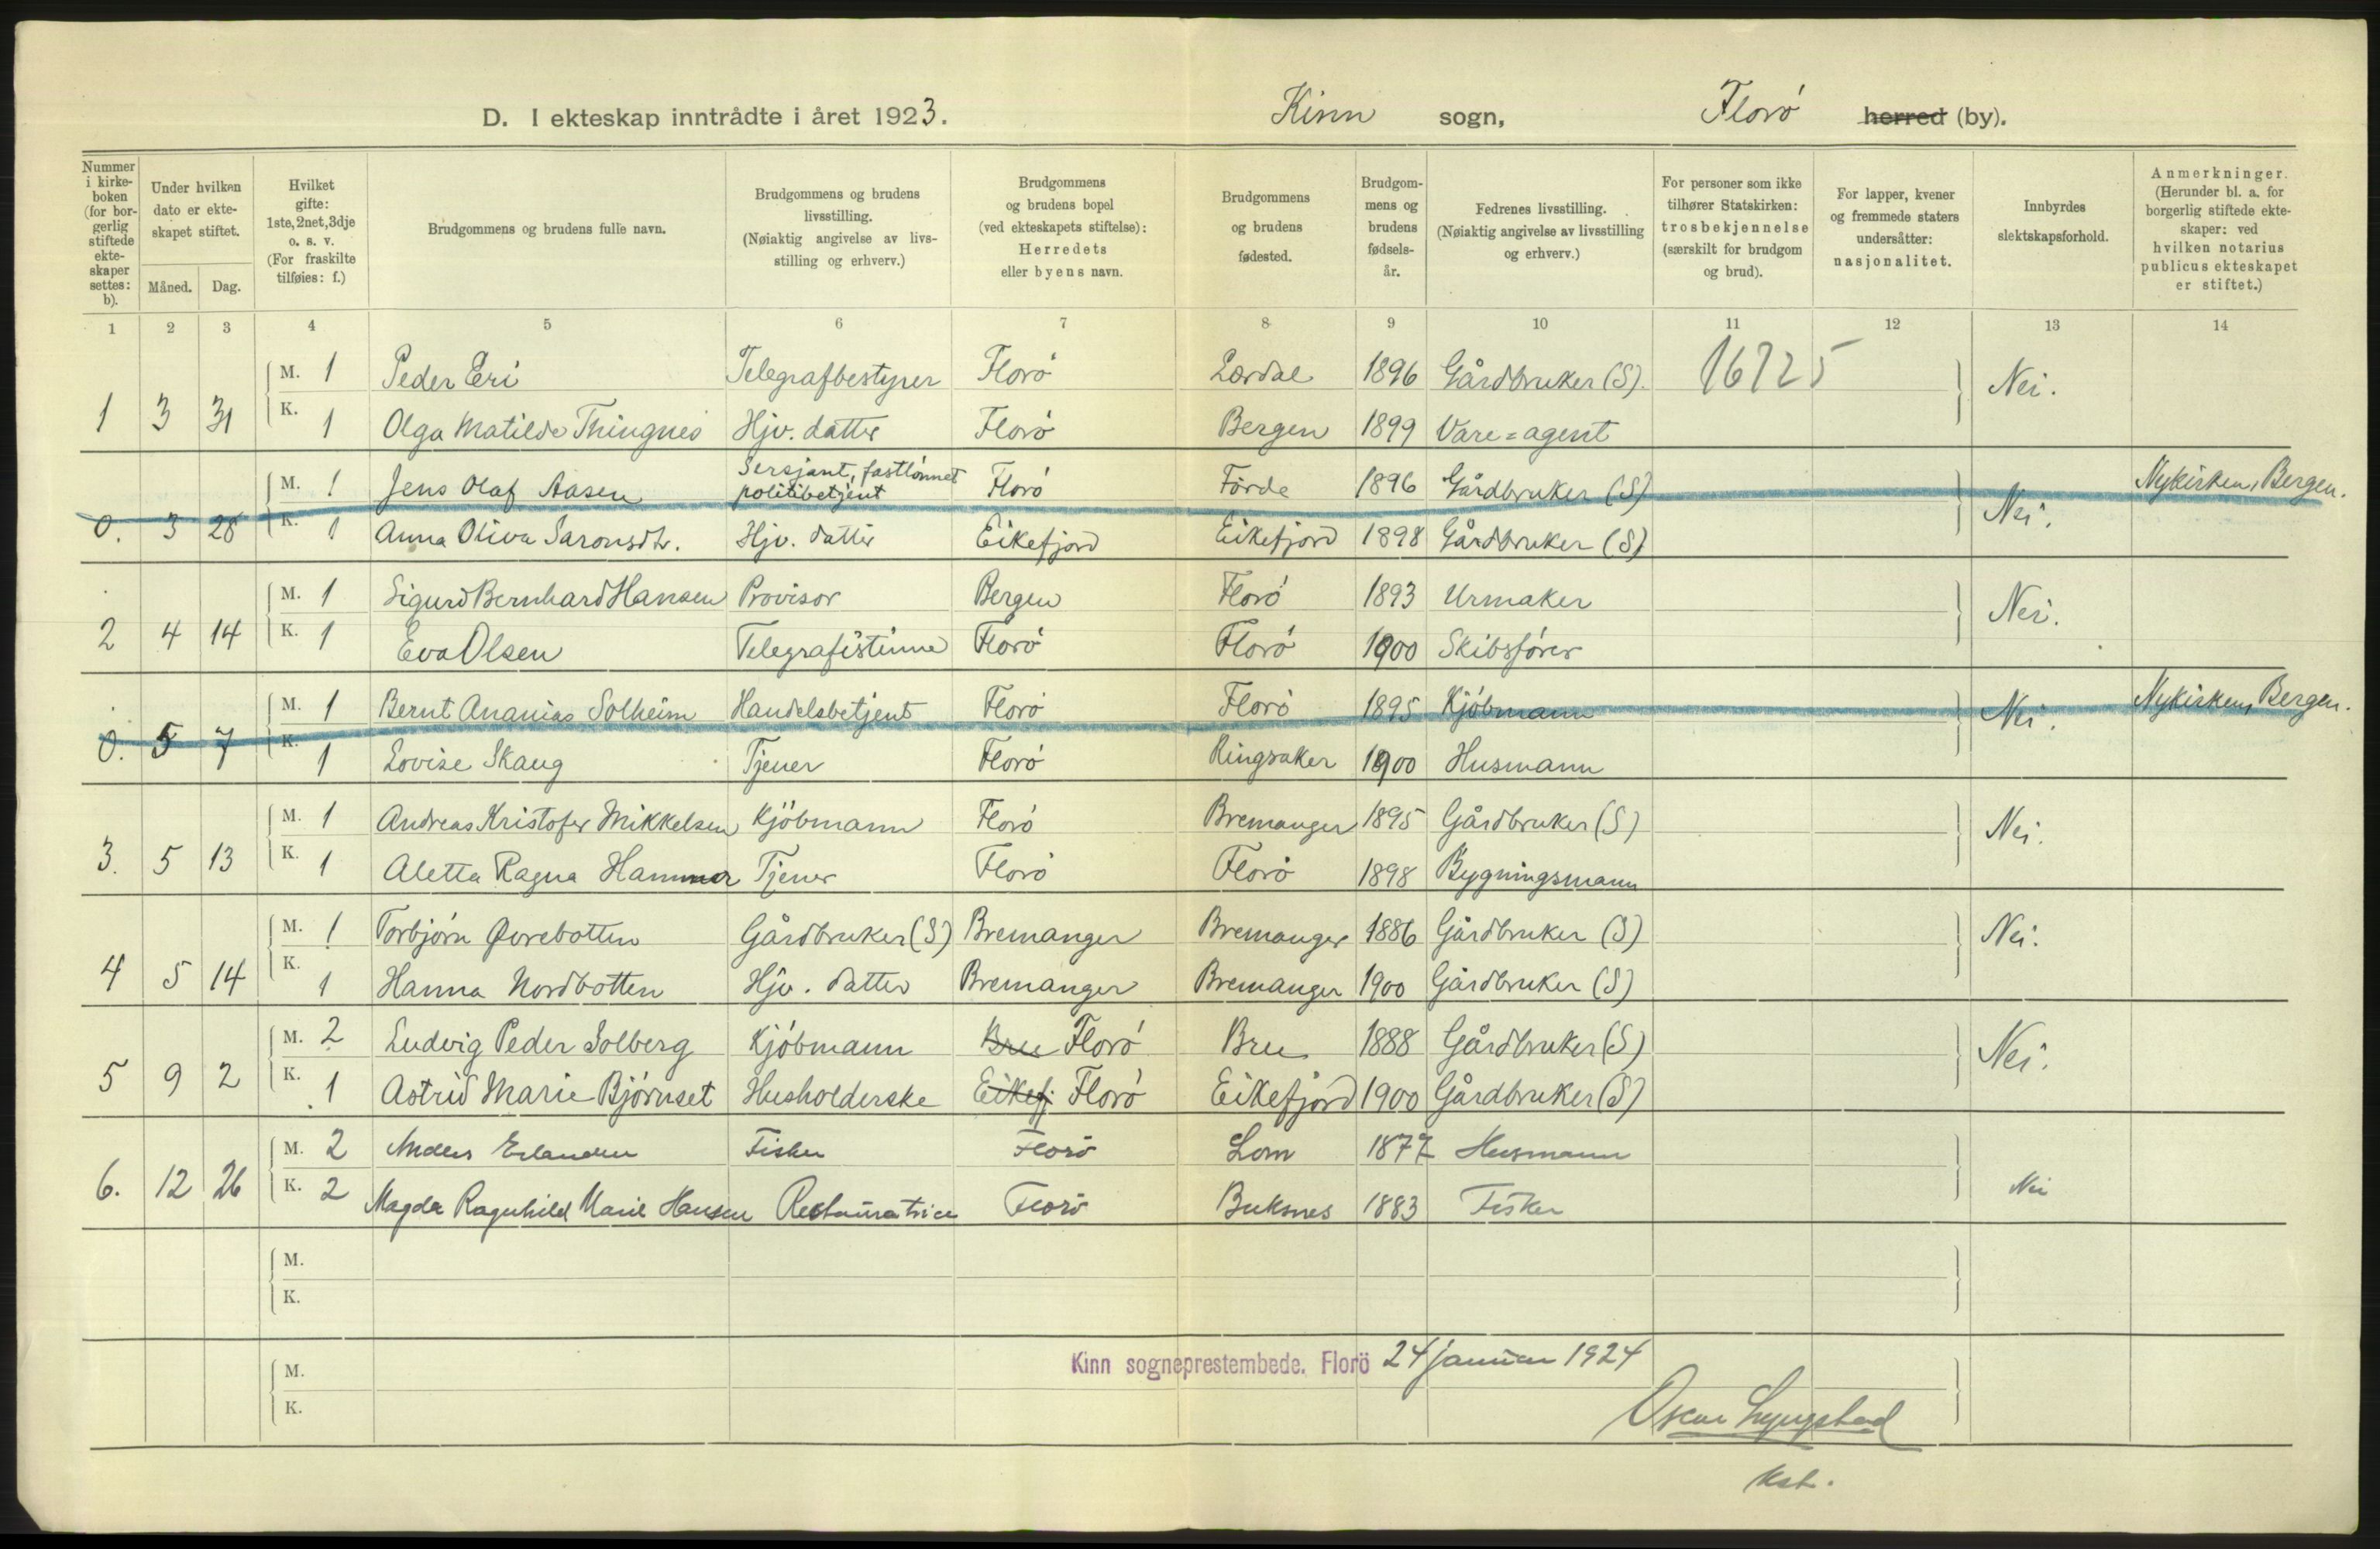 D. I ekteskap inntrådte i året 1923. Kinn sogn, Florö herred (by).
Nummer i kirke-boken (for bor-gerlig stiftede ekte-skaper settes: b).
Under hvilken dato er ekte-skapet stiftet.
Måned. Dag.
Hvilket gifte: 1ste, 2net, 3dje o. s. v. (For fraskilte tilføies: f.)
Brudgommens og brudens fulle navn.
Brudgommens og brudens livsstilling. (Nøiaktig angivelse av livs-stilling og erhverv.)
Brudgommens og brudens bopel (ved ekteskapets stiftelse): Herredets eller byens navn.
Brudgommens og brudens fødested.
Brudgom-mens og brudens fødsels-år.
Fedrenes livsstilling. (Nøiaktig angivelse av livsstilling og erhverv.)
For personer som ikke tilhører Statskirken: trosbekjennelse (særskilt for brudgom og brud).
For lapper, kvener og fremmede staters undersåtter: nasjonalitet.
Innbyrdes slektskapsforhold.
Anmerkninger. (Herunder bl. a. for borgerlig stiftede ekte-skaper: ved hvilken notarius publicus ekteskapet er stiftet.)
1 2 3 4 5 6 7 8 9 10 11 12 13 14
M. 1 Peder Eri Telegrafbestyrer Florö Lærdal 1896 Gårdbruker (S). 16725 Nei.
1 3 31 K. 1 Olga Matilde Thingnes Hjv. datter Florö Bergen 1899 Vare=agent
M. 1 Jens Olaf Aasen Sersjant, fastlönnet politibetjent Florö Förde 1896 Gårdbruker (S) Nykirken, Bergen.
0. 3 28 K. 1 Anna Oliva Saronsdtr. Hjv. datter Eikefjord Eikefjord 1898 Gårdbruker (S) Nei.
M. 1 Sigurd Bernhard Hansen Provisor Bergen Florö 1893 Urmaker Nei.
2 4 14 K. 1 Eva Olsen Telegrafistinne Florö Florö 1900 Skibsförer
M. 1 Bernt Ananias Solheim Handelsbetjent Florö Florö 1895 Kjöbmann Nei. Nykirken, Bergen.
0. 5 7 K. 1 Lovise Skaug Tjener Florö Ringsaker 1900 Husmann
M. 1 Andreas Kristofer Mikkelsen Kjöbmann Florö Bremanger 1895 Gårdbruker (S) Nei.
3. 5 13 K. 1 Aletta Ragna Hammer Tjener Florö Florö 1898 Bygningsmann
M. 1 Torbjörn Øvrebotten Gårdbruker (S) Bremanger Bremanger 1886 Gårdbruker (S) Nei.
4 5 14 K. 1 Hanna Nordbotten Hjv. datter Bremanger Bremanger 1900 Gårdbruker (S)
M. 2 Ludvig Peder Solberg Kjöbmann Bru Florö Bru 1888 Gårdbruker (S) Nei.
5 9 2 K. 1 Astrid Marie Björnset Husholderske Eikefj. Florö Eikefjord 1900 Gårdbruker (S)
M. 2 Anders Erlandsen Fisker Florö Lom 1877 Husmann
6. 12 26 K. 2 Magda Ragnhild Marie Hansen Restauratrice Florö Buksnes 1883 Fisker Nei
M.
K.
Kinn sogneprestembede. Florö 24 januar 1924
M.
K.
Oscar Lyngstad
kst.